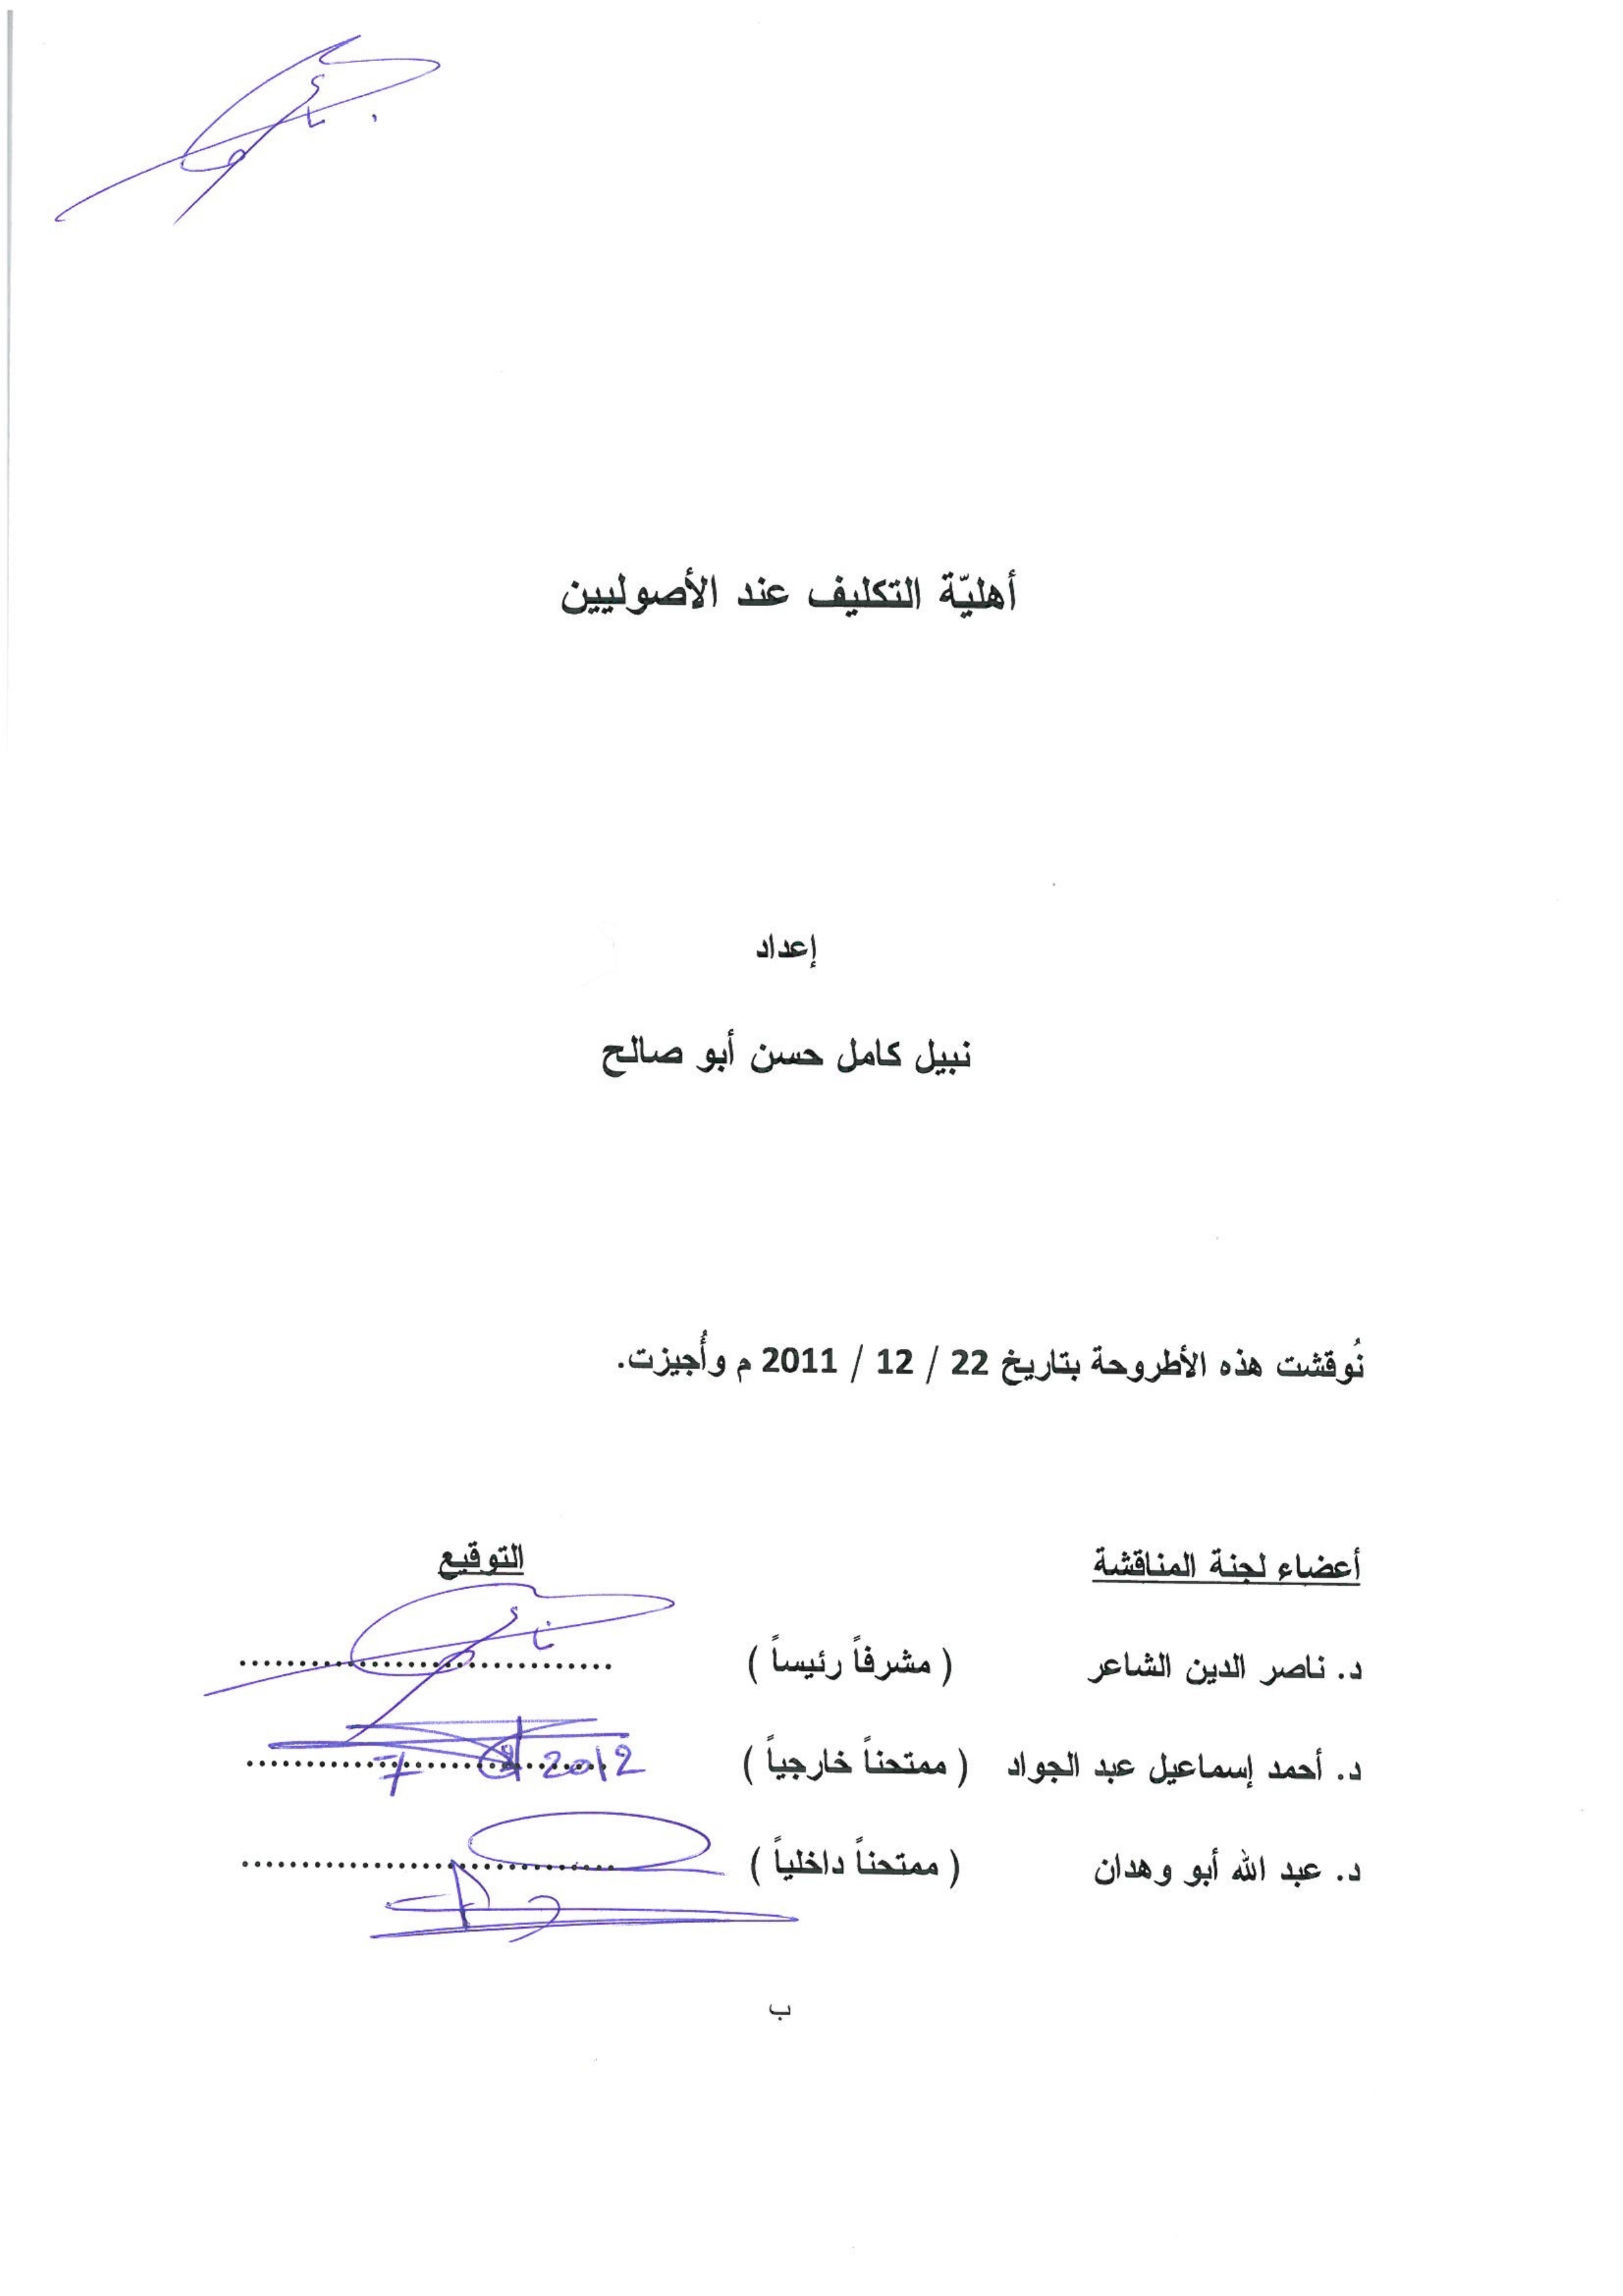 أهليّة التكليف عند الأصوليين
إعداد
نبيل كامل حسن أبو صالح
نُوقشت هذه الأطروحة بتاريخ 22 / 12 / 2011 م وأُجيزت.
أعضاء لجنة المناقشة التوقيع
د. ناصر الدين الشاعر ( مشرفاً رئيساً ) ................................
د. أحمد إسماعيل عبد الجواد ( ممتحناً خارجياً ) ................................ 2012
د. عبد الله أبو وهدان ( ممتحناً داخلياً ) ................................
ب